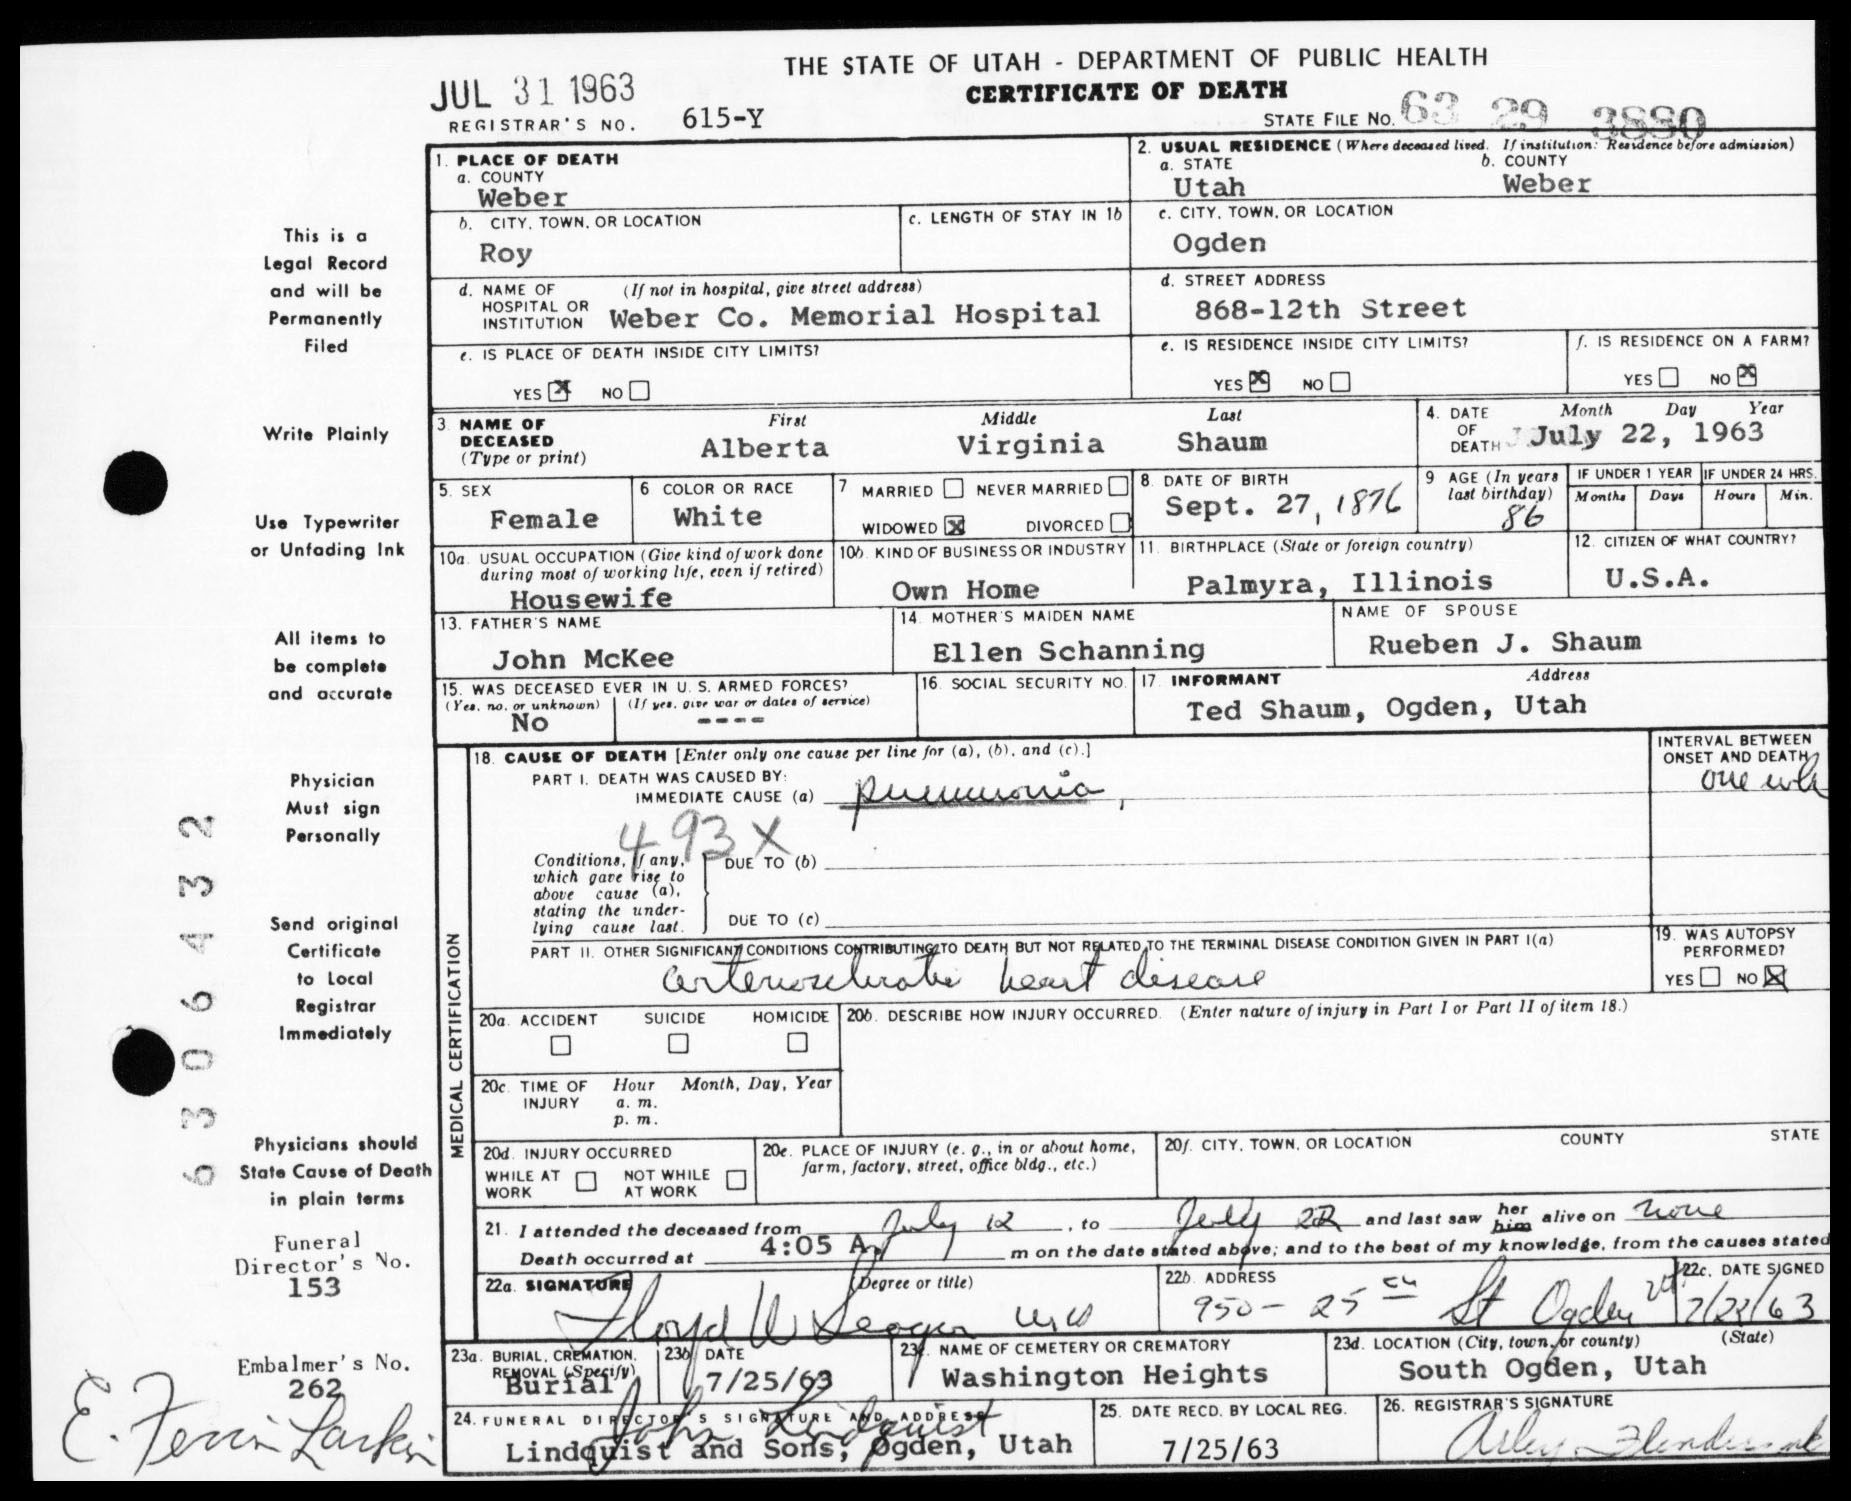 THE STATE OF UTAH - DEPARTMENT OF PUBLIC HEALTH
CERTIFICATE OF DEATH
JUL 31 1963
REGISTRAR'S NO. 615-Y
STATE FILE NO. 63 29 3880
1. PLACE OF DEATH
a. COUNTY
Weber
2. USUAL RESIDENCE (Where deceased lived. If institution: Residence before admission)
a. STATE b. COUNTY
Utah Weber
b. CITY, TOWN, OR LOCATION
Roy
c. LENGTH OF STAY IN 1b
c. CITY, TOWN, OR LOCATION
Ogden
d. NAME OF HOSPITAL OR INSTITUTION (If not in hospital, give street address)
Weber Co. Memorial Hospital
d. STREET ADDRESS
868-12th Street
e. IS PLACE OF DEATH INSIDE CITY LIMITS?
YES X NO
e. IS RESIDENCE INSIDE CITY LIMITS?
YES X NO
f. IS RESIDENCE ON A FARM?
YES NO X
3. NAME OF DECEASED (Type or print)
First Middle Last
Alberta Virginia Shaum
4. DATE OF DEATH Month Day Year
July 22, 1963
5. SEX
Female
6 COLOR OR RACE
White
7 MARRIED NEVER MARRIED
WIDOWED X DIVORCED
8. DATE OF BIRTH
Sept. 27, 1876
9 AGE (In years last birthday)
86
IF UNDER 1 YEAR IF UNDER 24 HRS.
Months Days Hours Min.
10a. USUAL OCCUPATION (Give kind of work done during most of working life, even if retired)
Housewife
10b. KIND OF BUSINESS OR INDUSTRY
Own Home
11. BIRTHPLACE (State or foreign country)
Palmyra, Illinois
12. CITIZEN OF WHAT COUNTRY?
U.S.A.
13. FATHER'S NAME
John McKee
14. MOTHER'S MAIDEN NAME
Ellen Schanning
NAME OF SPOUSE
Rueben J. Shaum
15. WAS DECEASED EVER IN U. S. ARMED FORCES?
(Yes, no, or unknown) (If yes, give war or dates of service)
No ----
16. SOCIAL SECURITY NO.
17. INFORMANT Address
Ted Shaum, Ogden, Utah
18. CAUSE OF DEATH [Enter only one cause per line for (a), (b), and (c).]
PART I. DEATH WAS CAUSED BY:
IMMEDIATE CAUSE (a) pneumonia,
INTERVAL BETWEEN ONSET AND DEATH
one wk
493X
Conditions, if any, which gave rise to above cause (a), stating the underlying cause last.
DUE TO (b)
DUE TO (c)
PART II. OTHER SIGNIFICANT CONDITIONS CONTRIBUTING TO DEATH BUT NOT RELATED TO THE TERMINAL DISEASE CONDITION GIVEN IN PART I(a)
arteriosclerotic heart disease
19. WAS AUTOPSY PERFORMED?
YES NO X
MEDICAL CERTIFICATION
20a. ACCIDENT SUICIDE HOMICIDE
20b. DESCRIBE HOW INJURY OCCURRED. (Enter nature of injury in Part I or Part II of item 18.)
20c. TIME OF INJURY Hour Month, Day, Year
a. m.
p. m.
20d. INJURY OCCURRED
WHILE AT WORK NOT WHILE AT WORK
20e. PLACE OF INJURY (e. g., in or about home, farm, factory, street, office bldg., etc.)
20f. CITY, TOWN, OR LOCATION COUNTY STATE
21. I attended the deceased from July 12, to July 22 and last saw her him alive on none
Death occurred at 4:05 A. m on the date stated above; and to the best of my knowledge, from the causes stated
22a. SIGNATURE (Degree or title)
Floyd W Seager MD
22b. ADDRESS
950 - 25th St Ogden Ut
22c. DATE SIGNED
7/22/63
23a. BURIAL, CREMATION, REMOVAL (Specify)
Burial
23b. DATE
7/25/63
23c. NAME OF CEMETERY OR CREMATORY
Washington Heights
23d. LOCATION (City, town, or county) (State)
South Ogden, Utah
24. FUNERAL DIRECTOR'S SIGNATURE AND ADDRESS
John Lindquist
Lindquist and Sons, Ogden, Utah
25. DATE RECD. BY LOCAL REG.
7/25/63
26. REGISTRAR'S SIGNATURE
This is a
Legal Record
and will be
Permanently
Filed
Write Plainly
Use Typewriter
or Unfading Ink
All items to
be complete
and accurate
Physician
Must sign
Personally
Send original
Certificate
to Local
Registrar
Immediately
Physicians should
State Cause of Death
in plain terms
Funeral
Director's No.
153
Embalmer's No.
262
E. Ferrin Larkin
6306432